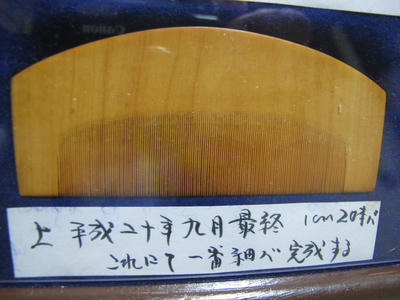 Canon
上 平成二十年九月最終 1cm20本バ
これにて一番細バ完成する